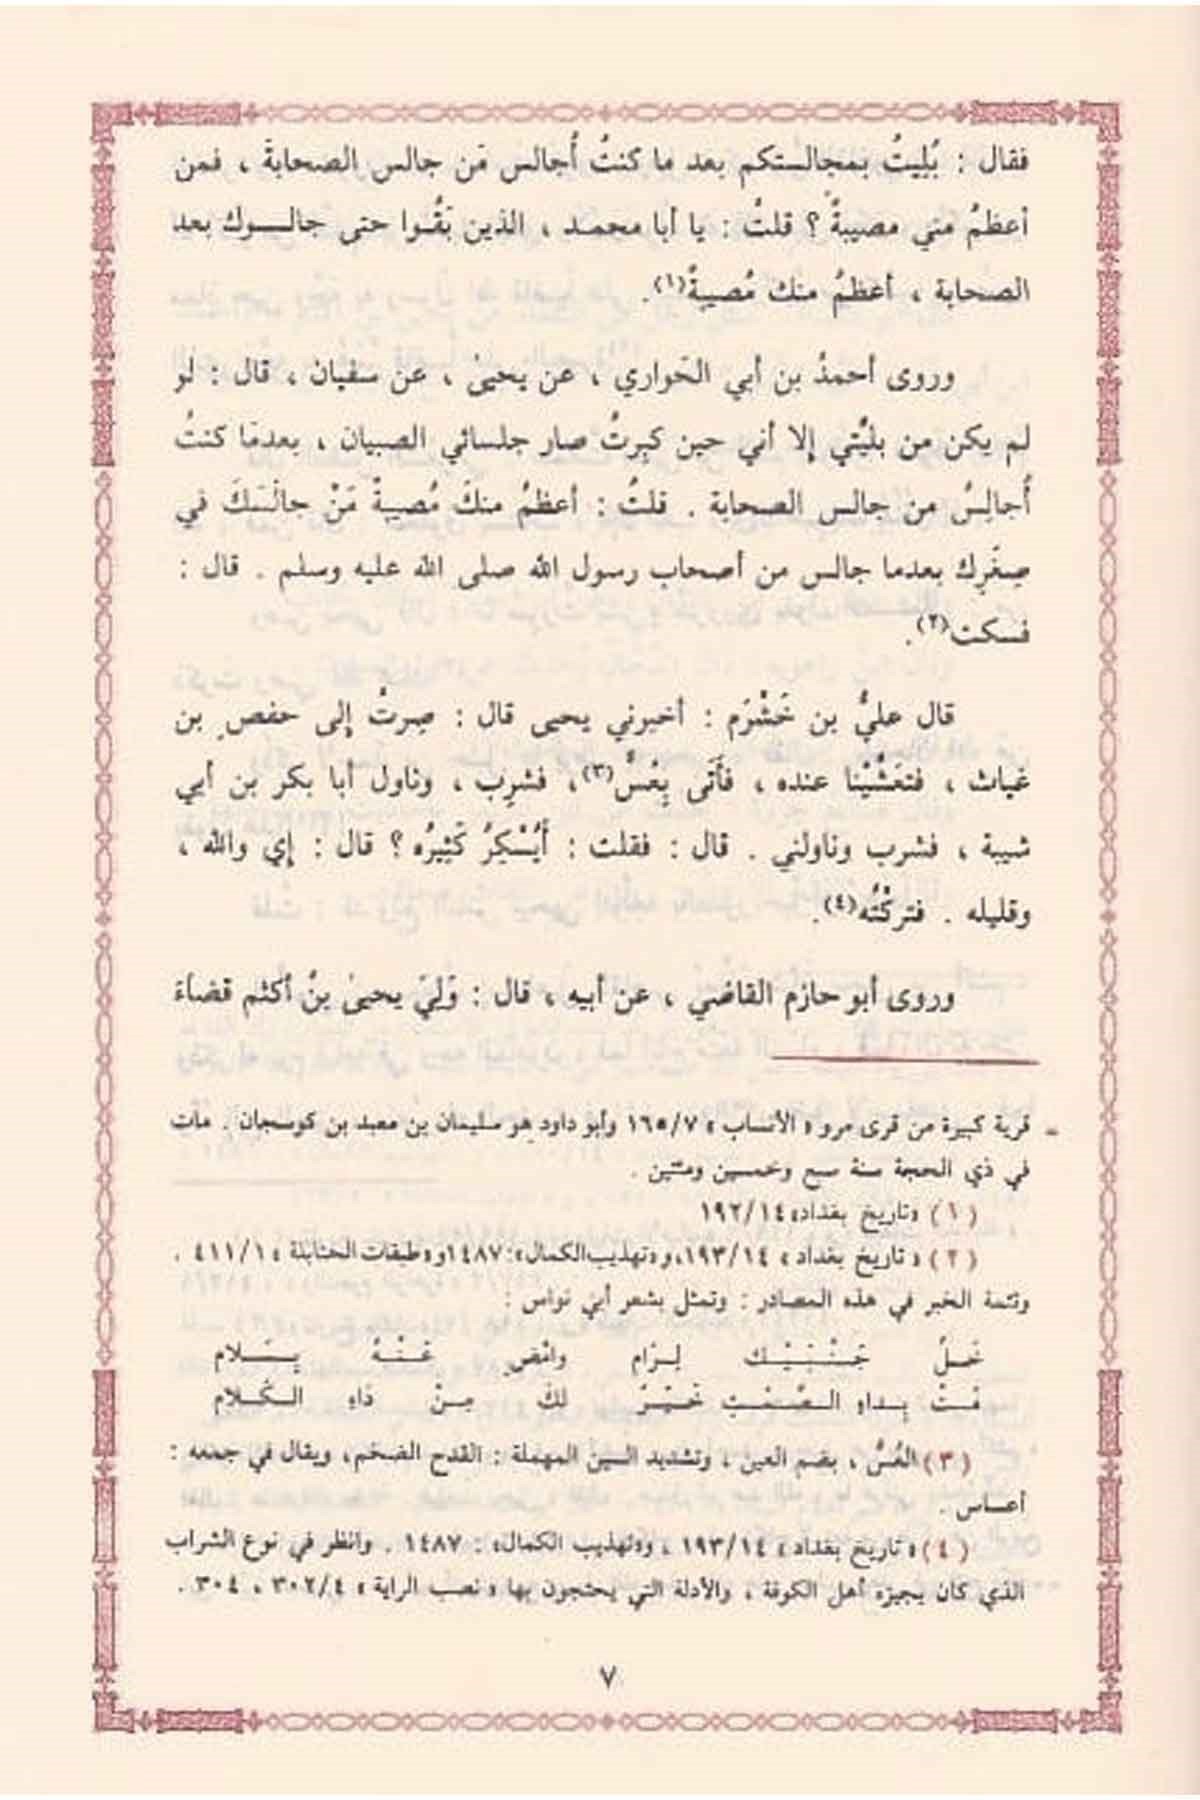 فقال : بُلِيتُ بمجالستكم بعد ما كنتُ أُجالس مَن جالس الصحابةَ ، فمن
أعظمُ مني مصيبةً ؟ قلتُ : يا أبا محمـد ، الذين بَقُـوا حتى جالسـوك بعد
الصحابة ، أعظمُ منك مُصيبةً(١).
وروى أحمدُ بن أبي الحَواري ، عن يحيىٰ ، عن سفيان ، قال : لو
لم يكن من بليَّتي إلا أني حين كبرتُ صار جلسائي الصبيان ، بعدمَا كنتُ
أُجالِسُ من جالس الصحابة . قلتُ : أعظمُ منكَ مُصيبةً مَنْ جالَسَكَ في
صِغَرِك بعدما جالس من أصحاب رسول الله صلى الله عليه وسلم . قال :
فسكت(٢).
قال عليُّ بن خَشْرَم : أخبرني يحيى قال : صِرتُ إلى حفص بن
غياث ، فتعَشَّيْنا عنده ، فأَتَى بِعُسٍّ(٣)، فشرِب ، وناول أبا بكر بن أبي
شيبة ، فشرب وناولني . قال : فقلت : أَيُسْكِرُ كَثِيرُه ؟ قال : إي والله ،
وقليله . فتركْتُه(٤).
وروى أبو حازم القاضي ، عن أبيه ، قال : وَلِيَ يحيىٰ بنُ أكثم قضاءَ
= قرية كبيرة من قرى مرو « الأنساب » ١٦٥/٧ وأبو داود هو سليمان بن معبد بن كوسجان . مات
في ذي الحجة سنة سبع وخمسين ومئتين .
(١) «تاريخ بغداد» ١٩٢/١٤
(٢) « تاريخ بغداد » ١٩٣/١٤، و«تهذيب الكمال»: ١٤٨٧و«طبقات الحنابلة » ٤١١/١ .
وتتمة الخبر في هذه المصادر : وتمثل بشعر أبي نواس :
خَـلِّ جَـنْـبَـيْـك لِـرَام وامْضِ عَـنْـهُ بِـسَـلام
مُـتْ بِـداءِ الـصَّـمْـتِ خَـيْـرٌ لكَ مِـنْ دَاءِ الـكَـلام
(٣) العُسُّ ، بضم العين ، وتشديد السين المهملة : القدح الضخم، ويقال في جمعه :
أعساس .
(٤) « تاريخ بغداد » ١٩٣/١٤ ، و«تهذيب الكمال» : ١٤٨٧ . وانظر في نوع الشراب
الذي كان يجيزه أهل الكوفة ، والأدلة التي يحتجون بها « نصب الراية » ٣٠٢/٤ ، ٣٠٤ .
٧